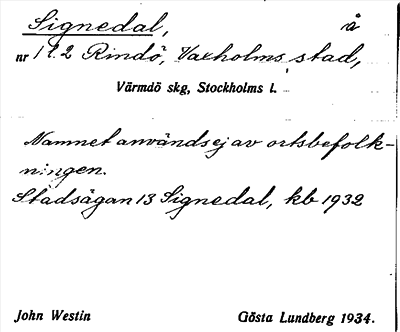 Signedal, å
nr 1 l. 2 Rindö, Vaxholms stad,
Värmdö skg, Stockholms l.
Namnet användsej av ortsbefolk-
ningen.
Stadsägan 13 Signedal, kb 1932
John Westin Gösta Lundberg 1934.